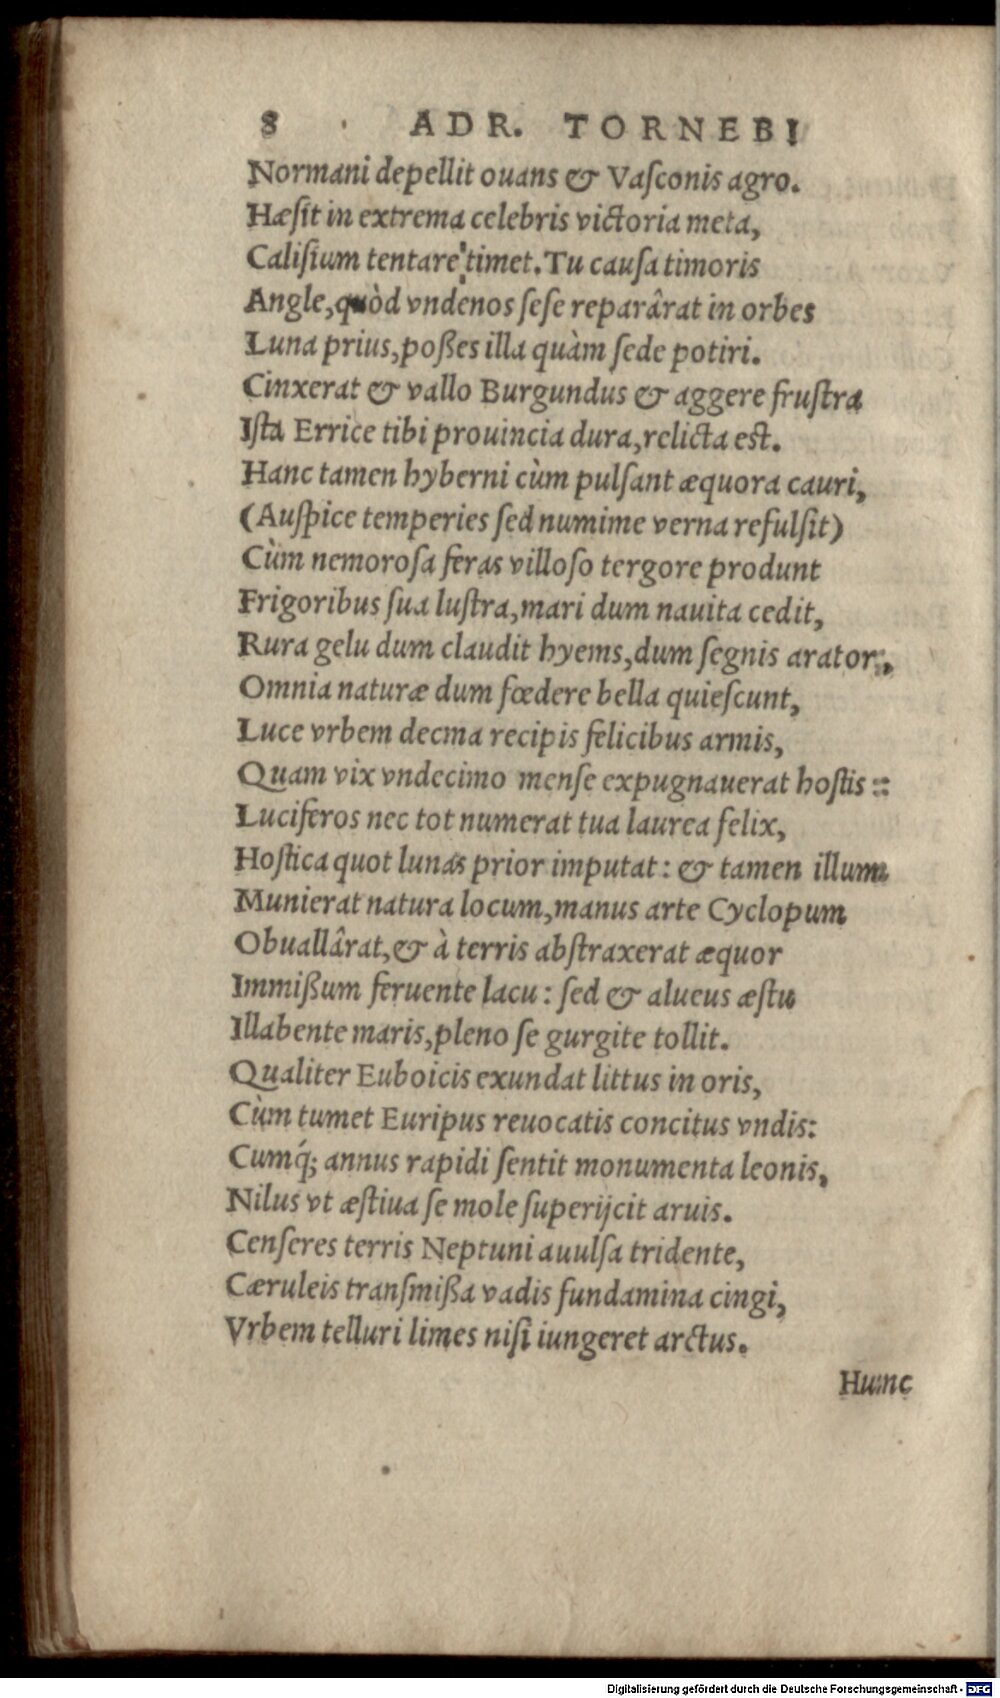 8 ADR. TORNEBI
Normani depellit ouans & Vaſconis agro.
Hæſit in extrema celebris victoria meta,
Caliſium tentare timet. Tu cauſa timoris
Angle, quòd vndenos ſeſe reparârat in orbes
Luna prius, poßes illa quàm ſede potiri.
Cinxerat & vallo Burgundus & aggere fruſtra
Iſta Errice tibi prouincia dura, relicta eſt.
Hanc tamen hyberni cùm pulſant æquora cauri,
(Auſpice temperies ſed numime verna refulſit)
Cùm nemoroſa feras villoſo tergore produnt
Frigoribus ſua luſtra, mari dum nauita cedit,
Rura gelu dum claudit hyems, dum ſegnis arator,
Omnia naturæ dum fœdere bella quieſcunt,
Luce vrbem decma recipis felicibus armis,
Quam vix vndecimo menſe expugnauerat hoſtis:
Luciferos nec tot numerat tua laurea felix,
Hoſtica quot lunas prior imputat: & tamen illum
Munierat natura locum, manus arte Cyclopum
Obuallârat, & à terris abſtraxerat æquor
Immißum feruente lacu: ſed & alueus æſtu
Illabente maris, pleno ſe gurgite tollit.
Qualiter Euboicis exundat littus in oris,
Cùm tumet Euripus reuocatis concitus vndis:
Cumq́; annus rapidi ſentit monumenta leonis,
Nilus vt æſtiua ſe mole ſuperijcit aruis.
Cenſeres terris Neptuni auulſa tridente,
Cæruleis tranſmißa vadis fundamina cingi,
Vrbem telluri limes niſi iungeret arctus.
Hunc
Digitalisierung gefördert durch die Deutsche Forschungsgemeinschaft - DFG